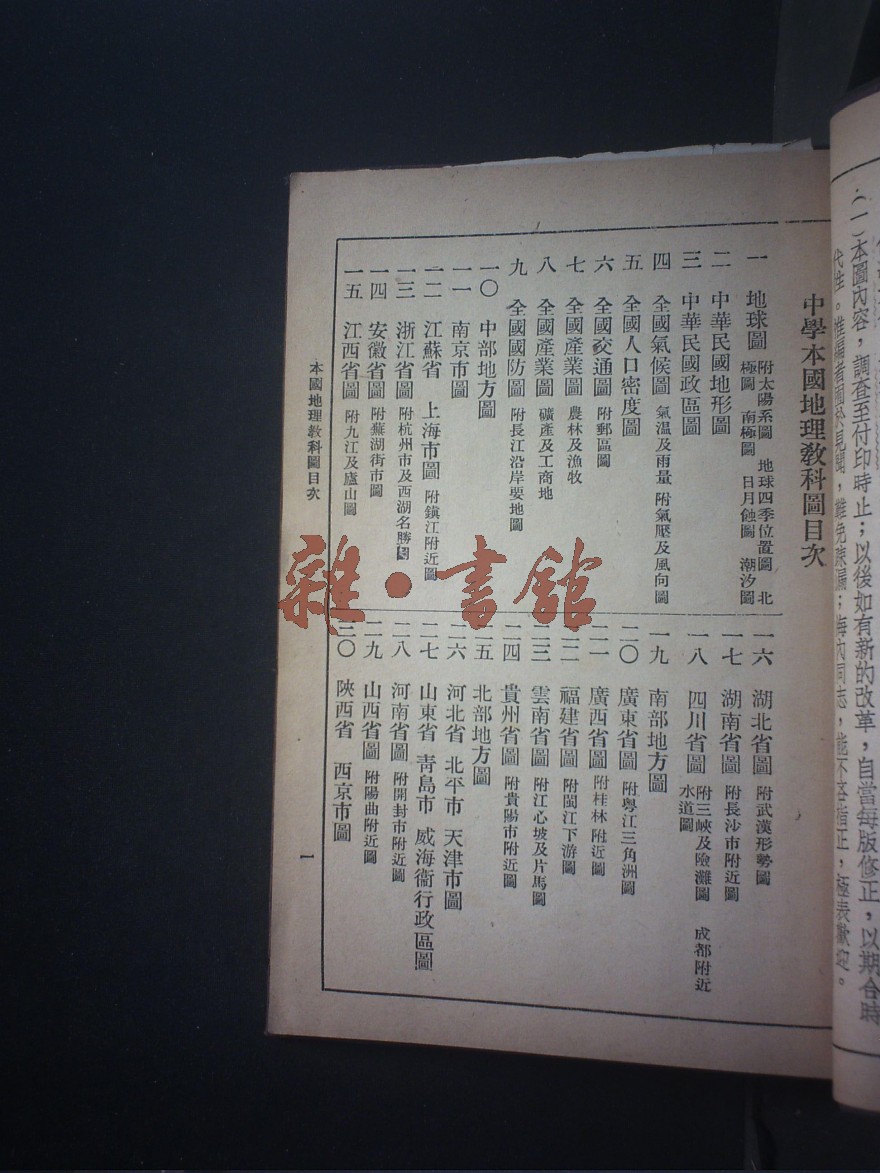 (一)本圖內容，調查至付印時止；以後如有新的改革，自當每版修正，以期合時
代性。惟編者囿於見聞，難免疎漏；海內同志，能不吝指正，極表歡迎。
中學本國地理教科圖目次
一 地球圖 附太陽系圖 地球四季位置圖 北極圖 南極圖 日月蝕圖 潮汐圖
二 中華民國地形圖
三 中華民國政區圖
四 全國氣候圖 氣温及雨量 附氣壓及風向圖
五 全國人口密度圖
六 全國交通圖 附郵區圖
七 全國產業圖 農林及漁牧
八 全國產業圖 礦產及工商地
九 全國國防圖 附長江沿岸要地圖
一〇 中部地方圖
一一 南京市圖
一二 江蘇省 上海市圖 附鎮江附近圖
一三 浙江省圖 附杭州市及西湖名勝圖
一四 安徽省圖 附蕪湖街市圖
一五 江西省圖 附九江及廬山圖
一六 湖北省圖 附武漢形勢圖
一七 湖南省圖 附長沙市附近圖
一八 四川省圖 附三峽及險灘圖 成都附近水道圖
一九 南部地方圖
二〇 廣東省圖 附粵江三角洲圖
二一 廣西省圖 附桂林附近圖
二二 福建省圖 附閩江下游圖
二三 雲南省圖 附江心坡及片馬圖
二四 貴州省圖 附貴陽市附近圖
二五 北部地方圖
二六 河北省 北平市 天津市圖
二七 山東省 青島市 威海衞行政區圖
二八 河南省圖 附開封市附近圖
二九 山西省圖 附陽曲附近圖
三〇 陝西省 西京市圖
本國地理教科圖目次
一
雜·書館